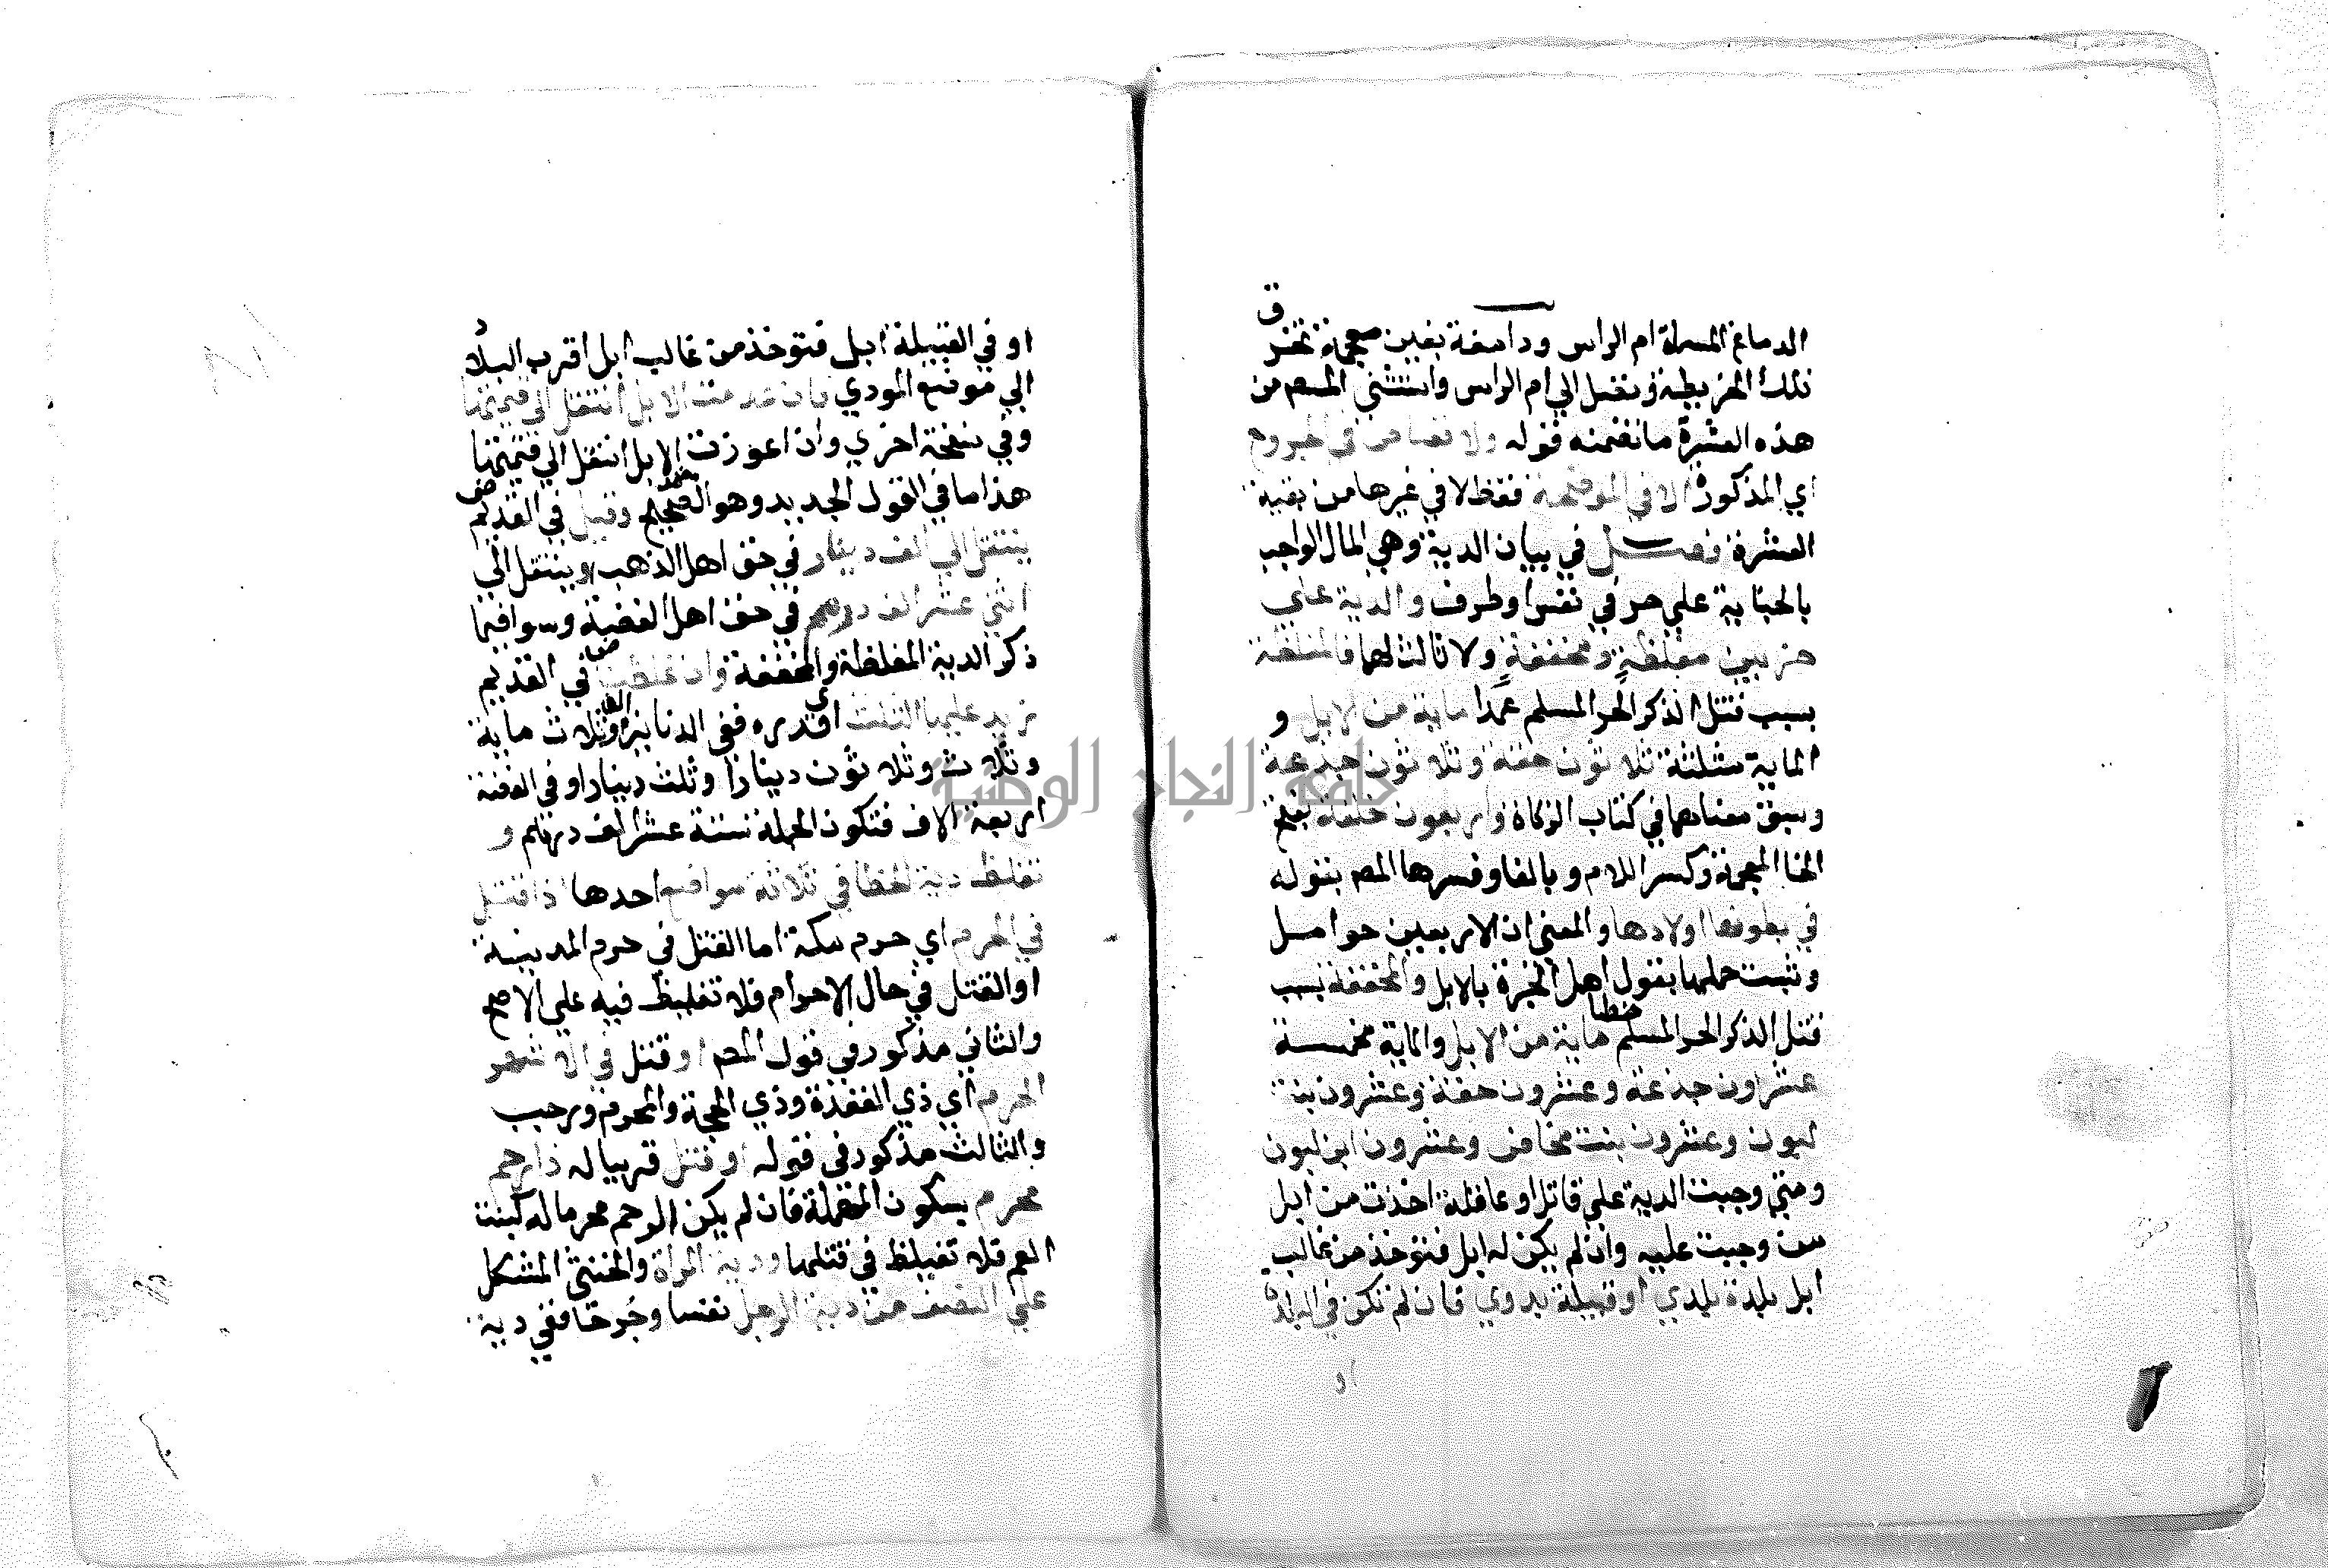 الدماغ المسماة ام الراس ودامغة بغين معجمة تخرق
تلك الخريطة وتصل الي ام الراس واستثني المص من
هذه العشرة ما تضمنه قوله ولا قصاص في الجروح
اي المذكورة الا في الموضحة فقط لا في غيرها من بقية
العشرة فصل في بيان الدية وهي المال الواجب
بالجناية علي حر في نفس او طرف والدية علي
ضربين مغلظة ومخففة ولا ثالث لهما فالمغلظة
بسبب قتل الذكر الحر المسلم عمدا ماية من الابل و
الماية مثلثة ثلاثون حقة وثلاثون جذعة
وسبق معناهما في كتاب الزكاة واربعون خلفة بفتح
الخا المعجمة وكسر اللام وبالفا وفسرها المص بقوله
في بطونها اولادها والمعني ان الاربعين حوامل
وتثبت حملها بقول اهل الخبرة بالابل والمخففة بسبب
قتل الذكر الحر المسلم خطا ماية من الابل والماية مخمسة
عشرون جذعة وعشرون حقة وعشرون بنت
لبون وعشرون بنت مخاض وعشرون ابن لبون
ومتي وجبت الدية علي قاتل او عاقلة اخذت من ابل
من وجبت عليه وان لم يكن له ابل فتوخذ من غالب
ابل بلدة بلدي او قبيلة بدوي فان لم تكن في البلدة
او
او في القبيلة ابل فتوخذ من غالب ابل اقرب البلاد
الي موضع المودي فان عدمت الابل انتقل الي قيمتها
وفي نسخة اخري وان اعوزت الابل انتقل الي قيمتها
هذا ما في القول الجديد وهو الصحيح وقيل في القديم
ينتقل الي الف دينار في حق اهل الذهب وينتقل الي
اثني عشر الف درهم في حق اهل الفضة وسوا فيما
ذكر الدية المغلظة والمخففة وان غلظت في القديم
زيد عليها الثلث اي قدره ففي الدنانير الف وثلاث ماية
وثلاث وثلاثون دينارا وثلث دينار او في الفضة
اربعة الاف فتكون الجملة ستة عشر الف درهم و
تغلظ دية الخطا في ثلاثة مواضع احدها اذا قتل
في الحرم اي حرم مكة اما القتل في حرم المدينة
او القتل في حال الاحرام فلا تغليظ فيه علي الاصح
والثاني مذكور في قول المص او قتل في الاشهر
الحرم اي ذي القعدة وذي الحجة والمحرم ورجب
والثالث مذكور في قوله او قتل قريبا له ذا رحم
محرم بسكون المهملة فان لم يكن الرحم محرما له كبنت
العم فلا تغيلظ في قتلها ودية المراة والخنثي المشكل
علي النصف من دية الرجل نفسا وجرحا ففي دية
جامعة النجاح الوطنية